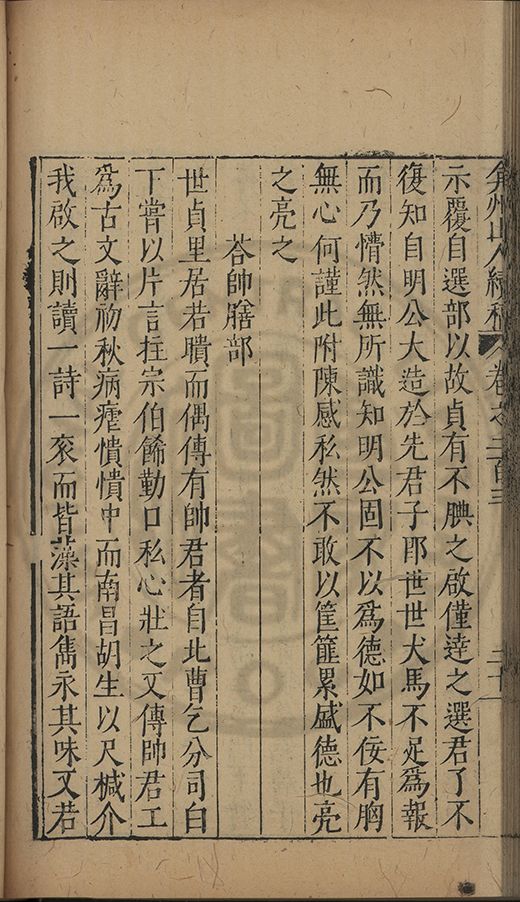 弇州山人續稿 卷之二百三 二十一
示覆自選部以故貞有不腆之啟僅達之選君了不
復知自明公大造於先君子耶世世犬馬不足爲報
而乃懵然無所識知明公固不以爲德如不佞有胸
無心何謹此附陳感私然不敢以筐篚累盛德也亮
之亮之
荅帥膳部
世貞里居若聵而偶傳有帥君者自北曹乞分司白
下嘗以片言拄宗伯餙勤口私心壯之又傳帥君工
爲古文辭初秋病瘧憒憒中而南昌胡生以尺椷介
我啟之則讀一詩一衮而皆藻其語雋永其味又若